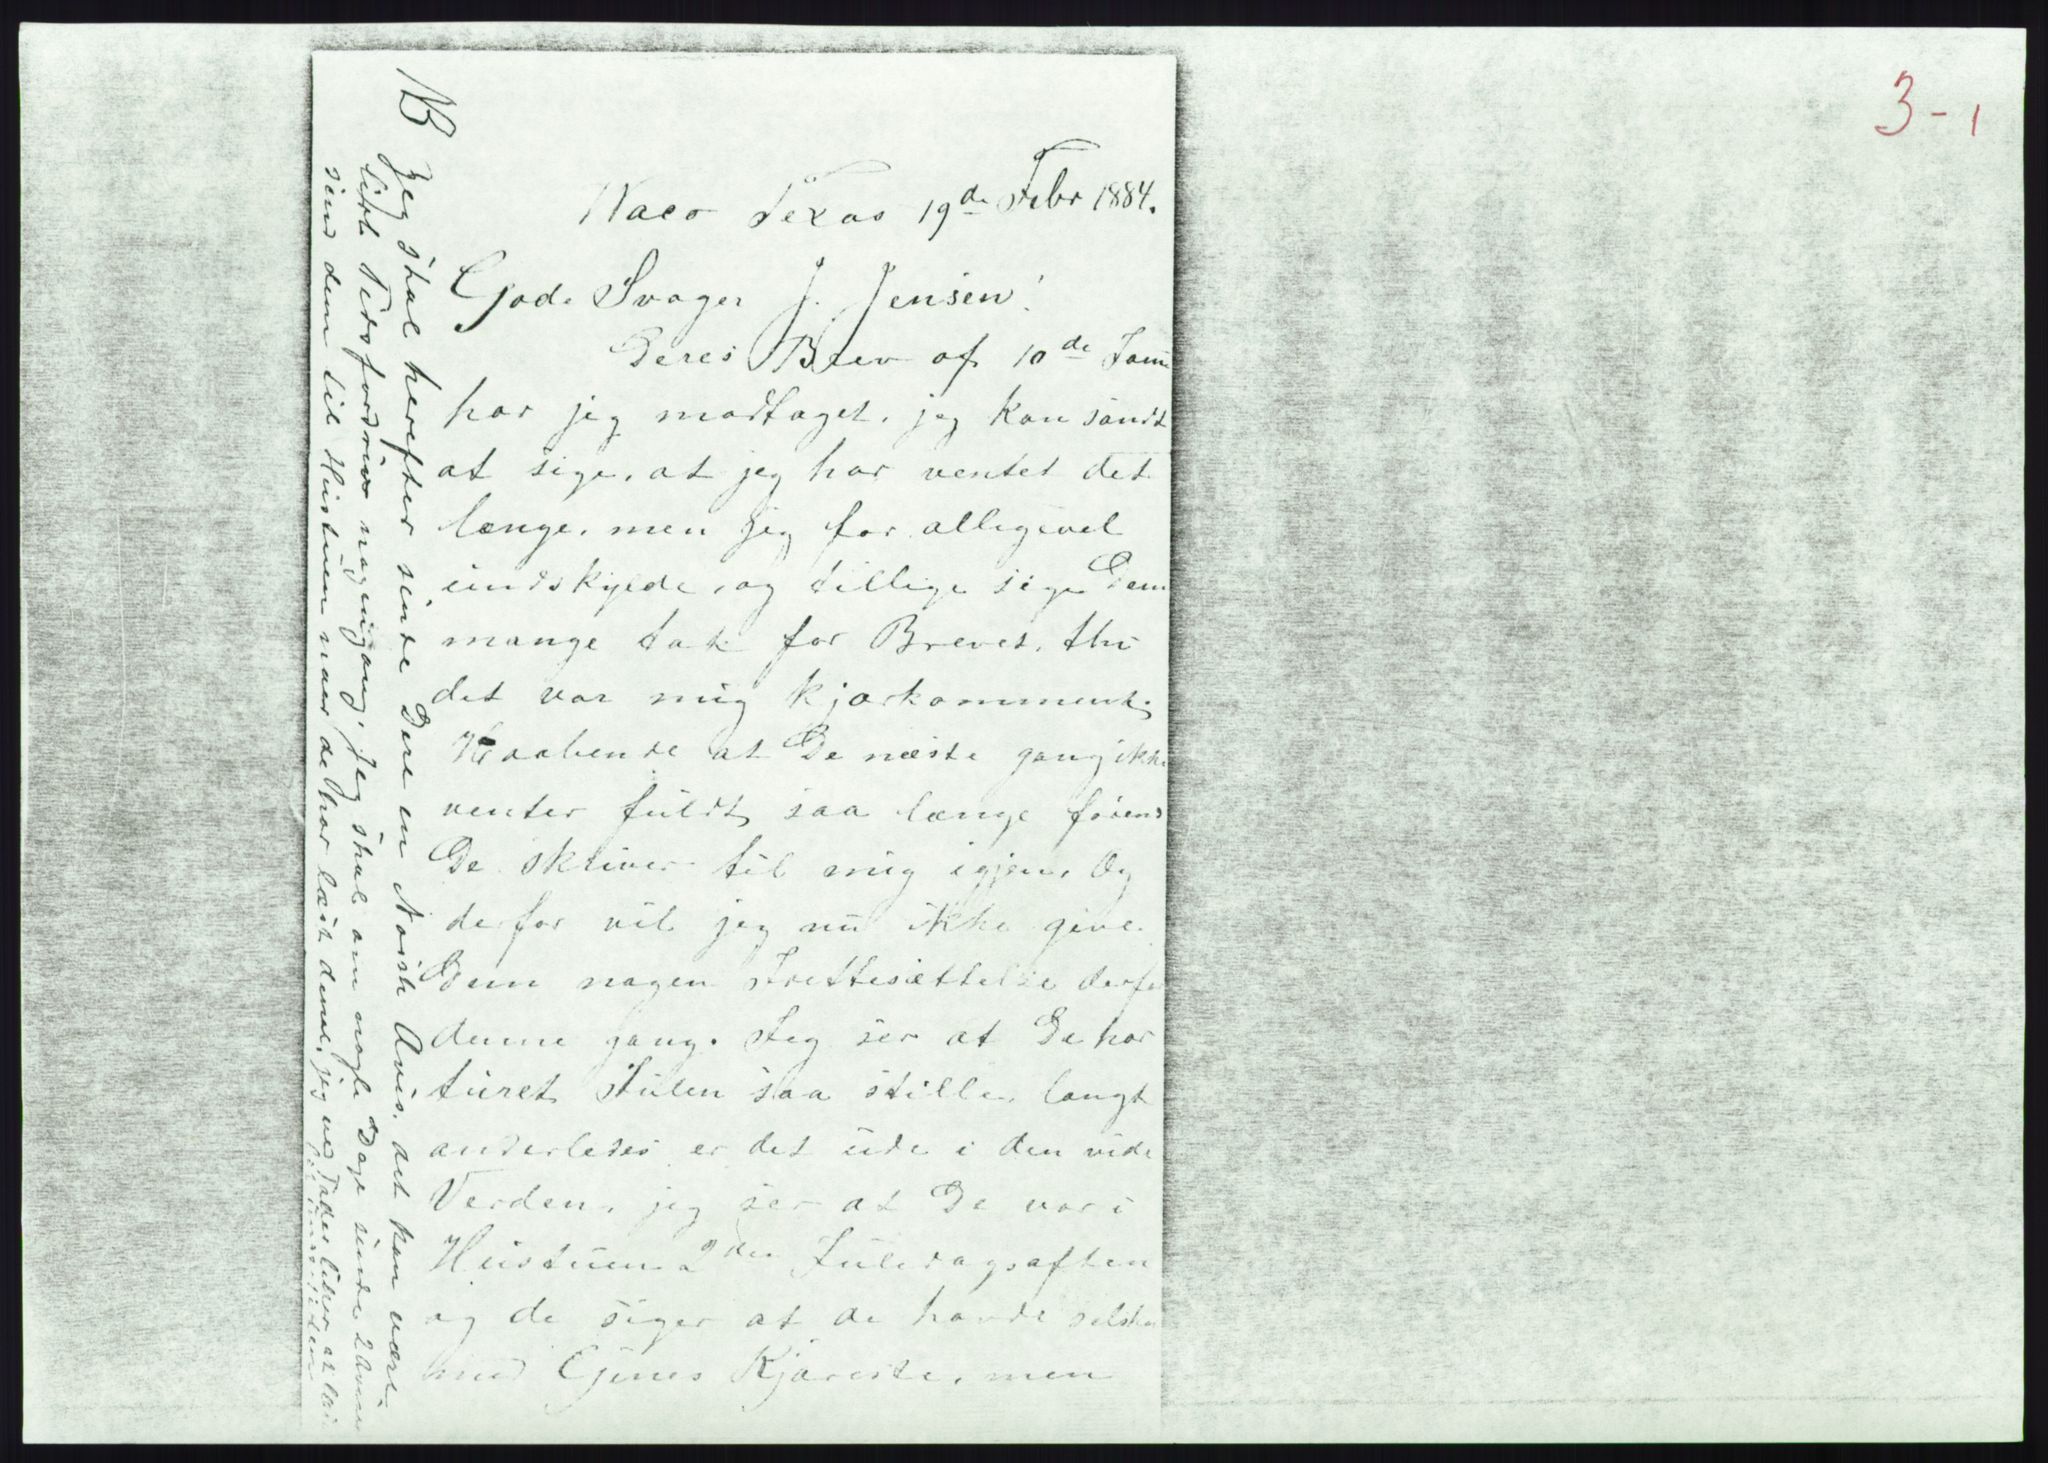 3-1
NB
Waco Texas 19de Febr 1884.
Gode Svoger J. Jensen!
Deres Brev af 10de Janu
har jeg modtaget, jeg kan sandt
at sige, at jeg har ventet det
længe, men jeg for alligevel
undskylde, og tillige sige Dem
mange tak for Brevet, thi
det var mig kjærkomment.
Haabende at De næste gang ikke
venter fuldt saa længe førend
De skriver til mig igjen. Og
derfor vil jeg nu ikke give
Dem nogen Irettesættelse derfor
denne gang. Jeg ser at De har
turet Julen saa stille, langt
anderledes er det ude i den vide
Verden, jeg ser at De var i
Hustuen 2den Juledagsaften
og de siger at de havde selska
med Gjenes Kjæreste, men
Jeg skal herefter sende Dere en Norsk Avis, det kan være
lidt Tidsfordriv nogengang, Jeg skal om nogle Dage sende 2 Aviser
send dem til Hustuen naar de har læst dem, jeg ved Fader liker at læse